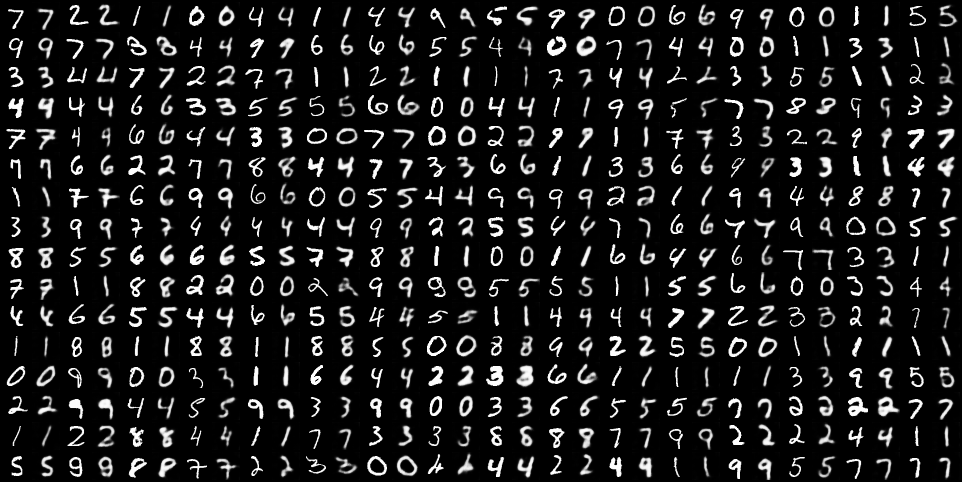 7 7 2 2 1 1 0 0 4 4 1 1 4 4 9 9 5 5 9 9 0 0 6 6 9 9 0 0 1 1 5 5
9 9 7 7 3 3 4 4 9 9 6 6 6 6 5 5 4 4 0 0 7 7 4 4 0 0 1 1 3 3 1 1
3 3 4 4 7 7 2 2 7 7 1 1 2 2 1 1 1 1 7 7 4 4 2 2 3 3 5 5 1 1 2 2
4 4 4 4 6 6 3 3 5 5 5 5 6 6 0 0 4 4 1 1 9 9 5 5 7 7 8 8 9 9 3 3
7 7 4 4 6 6 4 4 3 3 0 0 7 7 0 0 2 2 9 9 1 1 7 7 3 3 2 2 9 9 7 7
7 7 6 6 2 2 7 7 8 8 4 4 7 7 3 3 6 6 1 1 3 3 6 6 9 9 3 3 1 1 4 4
1 1 7 7 6 6 9 9 6 6 0 0 5 5 4 4 9 9 9 9 2 2 1 1 9 9 4 4 8 8 7 7
3 3 9 9 7 7 4 4 4 4 4 4 9 9 2 2 5 5 4 4 7 7 6 6 7 7 9 9 0 0 5 5
8 8 5 5 6 6 6 6 5 5 7 7 8 8 1 1 0 0 1 1 6 6 4 4 6 6 7 7 3 3 1 1
7 7 1 1 8 8 2 2 0 0 2 2 9 9 9 9 5 5 5 5 1 1 5 5 6 6 0 0 3 3 4 4
4 4 6 6 5 5 4 4 6 6 5 5 4 4 5 5 1 1 4 4 4 4 7 7 2 2 3 3 2 2 7 7
1 1 8 8 1 1 8 8 1 1 8 8 5 5 0 0 8 8 9 9 2 2 5 5 0 0 1 1 1 1 1 1
0 0 9 9 0 0 3 3 1 1 6 6 4 4 2 2 3 3 6 6 1 1 1 1 1 1 3 3 9 9 5 5
2 2 9 9 4 4 5 5 9 9 3 3 9 9 0 0 3 3 6 6 5 5 5 5 7 7 2 2 2 2 7 7
1 1 2 2 8 8 4 4 1 1 7 7 3 3 3 3 8 8 8 8 7 7 9 9 2 2 2 2 4 4 1 1
5 5 9 9 8 8 7 7 2 2 3 3 0 0 4 4 4 4 2 2 4 4 1 1 9 9 5 5 7 7 7 7